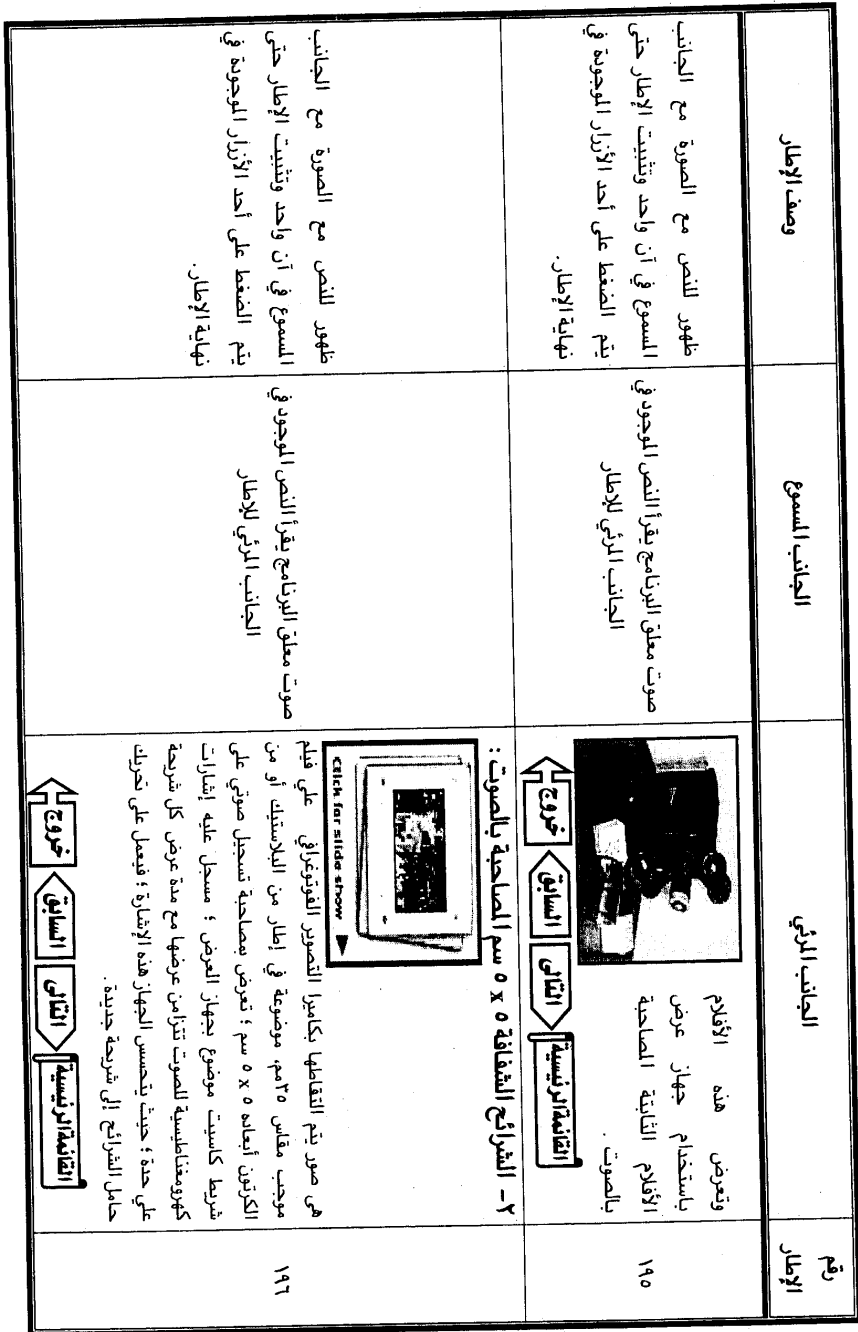 رقم
الإطار
الجانب المرئي
الجانب المسموع
وصف الإطار
١٩٥
وتعرض هذه الأفلام
باستخدام جهاز عرض
الأفلام الثابتة المصاحبة
بالصوت .
القائمة الرئيسية
التالى
السابق
خروج
صوت معلق البرنامج يقرأ النص الموجود في
الجانب المرئي للإطار
ظهور للنص مع الصورة مع الجانب
المسموع في آن واحد وتثبيت الإطار حتى
يتم الضغط على أحد الأزرار الموجودة في
نهاية الإطار.
١٩٦
٢- الشرائح الشفافة ٥ x ٥ سم المصاحبة بالصوت :
Click for slide show
هى صور يتم التقاطها بكاميرا التصوير الفوتوغرافي علي فيلم
موجب مقاس ٣٥مم، موضوعة في إطار من البلاستيك أو من
الكرتون أبعاده ٥ x ٥ سم ؛ تعرض بمصاحبة تسجيل صوتي على
شريط كاسيت موضوع بجهاز العرض ؛ مسجل عليه إشارات
كهرومغناطيسية للصوت تتزامن عرضها مع مدة عرض كل شريحة
علي حدة ؛ حيث يتحسس الجهاز هذه الإشارة ؛ فيعمل على تحريك
حامل الشرائح إلى شريحة جديدة .
القائمة الرئيسية
التالى
السابق
خروج
صوت معلق البرنامج يقرأ النص الموجود في
الجانب المرئي للإطار
ظهور للنص مع الصورة مع الجانب
المسموع في آن واحد وتثبيت الإطار حتى
يتم الضغط على أحد الأزرار الموجودة في
نهاية الإطار.